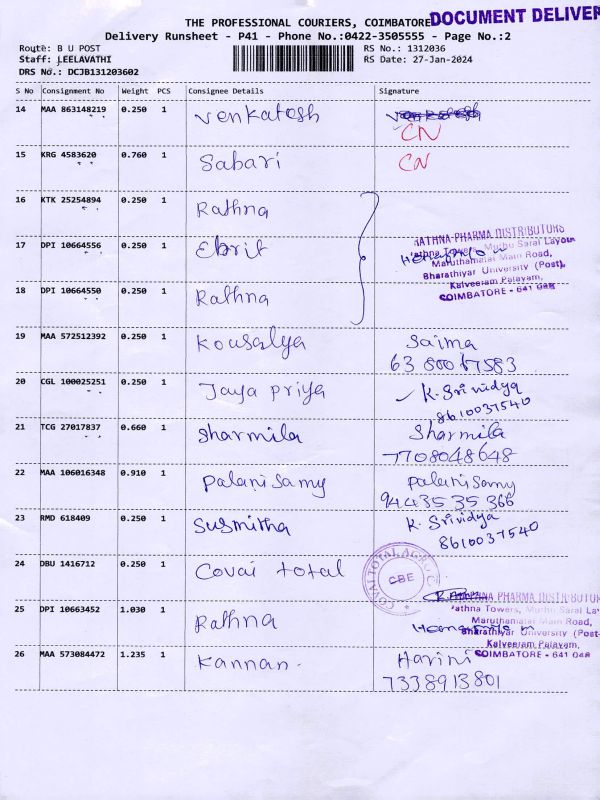 THE PROFESSIONAL COURIERS, COIMBATORE DOCUMENT DELIVER
Delivery Runsheet - P41 - Phone No.:0422-3505555 - Page No.:2
Route: B U POST RS No.: 1312036
Staff: LEELAVATHI RS Date: 27-Jan-2024
DRS No.: DCJB131203602
S No Consignment No Weight PCS Consignee Details Signature
14 MAA 863148219 0.250 1 Venkatesh
CN
15 KRG 4583620 0.760 1 Sabari CN
16 KTK 25254894 0.250 1 Rathna
RATHNA PHARMA DISTRIBUTORS
17 DPI 10664556 0.250 1 Ebrit
Rathna Towers, Muthu Sarai Layout
Maruthamalai Main Road,
Bharathiyar University (Post),
Kalveeram Palayam,
COIMBATORE - 641 046
18 DPI 10664550 0.250 1 Rathna
19 MAA 572512392 0.250 1 Kousalya Saima
63 80067583
20 CGL 100025251 0.250 1 Jaya priya K. Srividya
8610037540
21 TCG 27017837 0.660 1 Sharmila Sharmila
7708048648
22 MAA 106016348 0.910 1 Palani Samy Palani Samy
94435 35 366
23 RMD 618409 0.250 1 Susmitha K. Srividya
8610037540
24 DBU 1416712 0.250 1 Covai total
COVAI TOTAL
CBE
RATHNA PHARMA DISTRIBUTOR
25 DPI 10663452 1.030 1 Rathna
Rathna Towers, Muthu Sarai La
Maruthamalai Main Road,
Bharathiyar University (Post
Kalveeram Palayam,
COIMBATORE - 641 046
26 MAA 573084472 1.235 1 Kannan Harini
7338913801